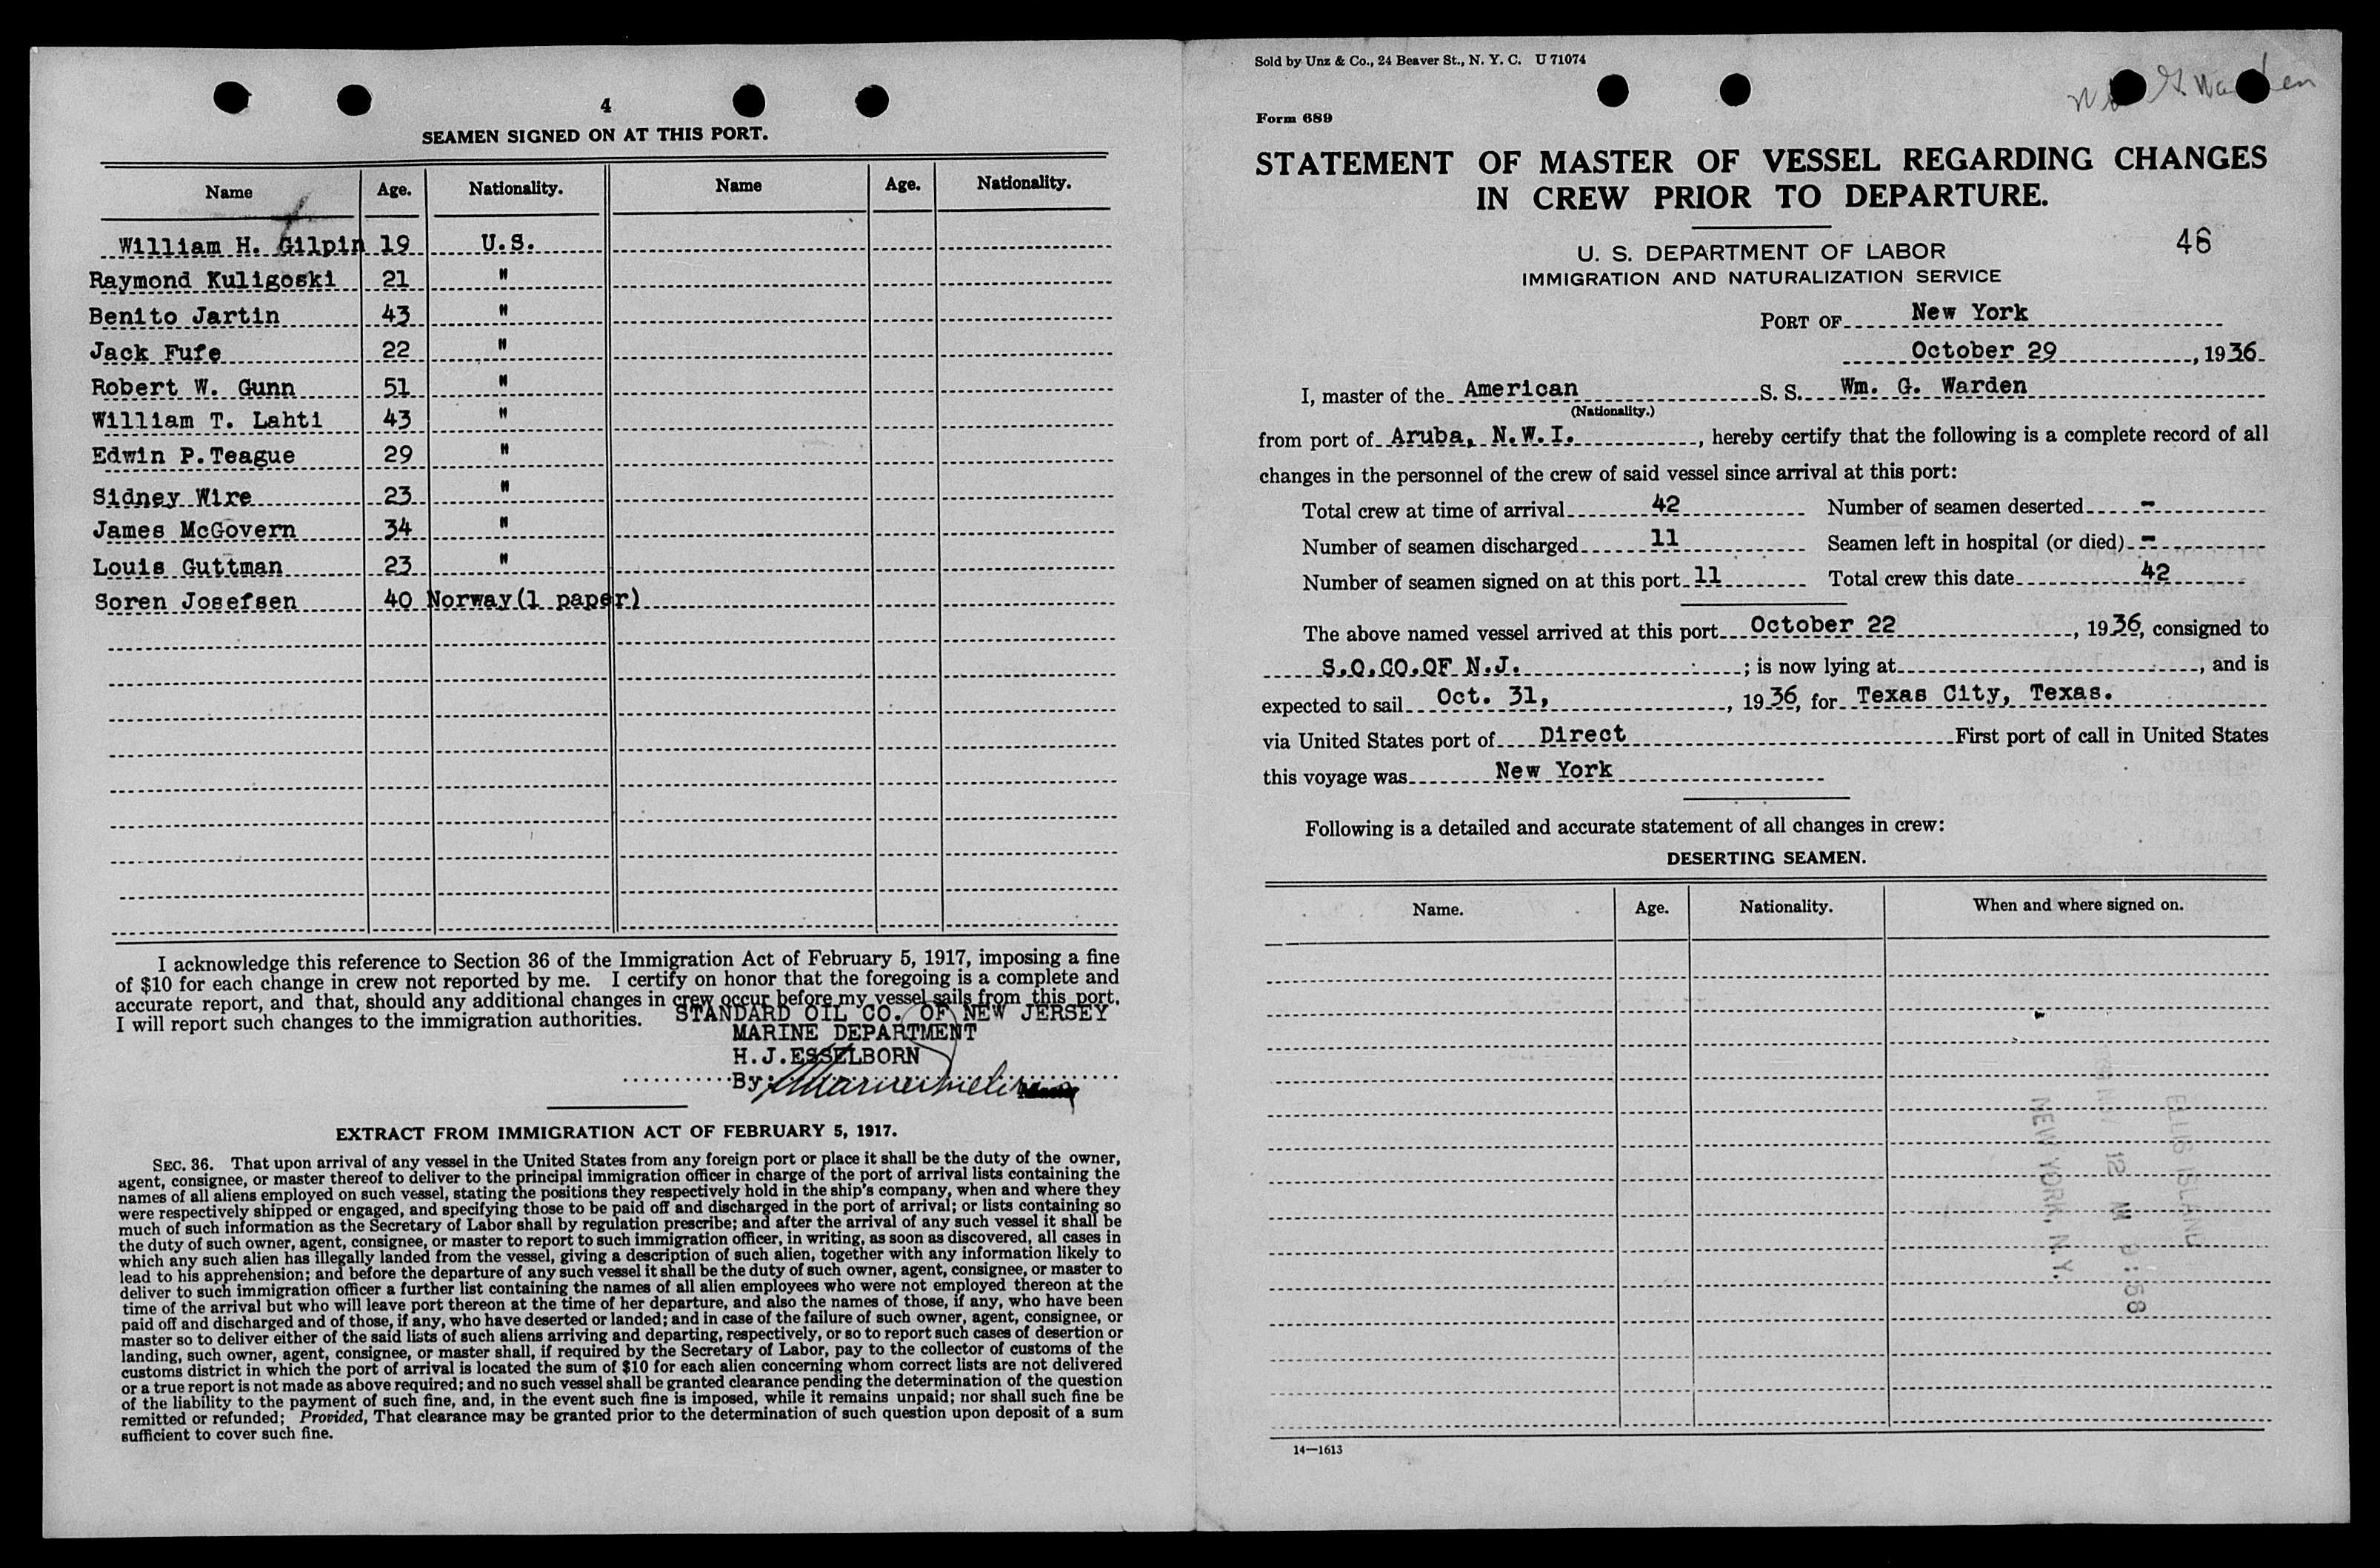 4
SEAMEN SIGNED ON AT THIS PORT.
Name Age. Nationality. Name Age. Nationality.
William H. Gilpin 19 U.S.
Raymond Kuligoski 21 "
Benito Jartin 43 "
Jack Fufe 22 "
Robert W. Gunn 51 "
William T. Lahti 43 "
Edwin P.Teague 29 "
Sidney Wire 23 "
James McGovern 34 "
Louis Guttman 23 "
Soren Josefsen 40 Norway(1 paper)
I acknowledge this reference to Section 36 of the Immigration Act of February 5, 1917, imposing a fine
of $10 for each change in crew not reported by me. I certify on honor that the foregoing is a complete and
accurate report, and that, should any additional changes in crew occur before my vessel sails from this port,
I will report such changes to the immigration authorities.
STANDARD OIL CO. OF NEW JERSEY
MARINE DEPARTMENT
H.J.ESSELBORN
By:
EXTRACT FROM IMMIGRATION ACT OF FEBRUARY 5, 1917.
SEC. 36. That upon arrival of any vessel in the United States from any foreign port or place it shall be the duty of the owner,
agent, consignee, or master thereof to deliver to the principal immigration officer in charge of the port of arrival lists containing the
names of all aliens employed on such vessel, stating the positions they respectively hold in the ship's company, when and where they
were respectively shipped or engaged, and specifying those to be paid off and discharged in the port of arrival; or lists containing so
much of such information as the Secretary of Labor shall by regulation prescribe; and after the arrival of any such vessel it shall be
the duty of such owner, agent, consignee, or master to report to such immigration officer, in writing, as soon as discovered, all cases in
which any such alien has illegally landed from the vessel, giving a description of such alien, together with any information likely to
lead to his apprehension; and before the departure of any such vessel it shall be the duty of such owner, agent, consignee, or master to
deliver to such immigration officer a further list containing the names of all alien employees who were not employed thereon at the
time of the arrival but who will leave port thereon at the time of her departure, and also the names of those, if any, who have been
paid off and discharged and of those, if any, who have deserted or landed; and in case of the failure of such owner, agent, consignee, or
master so to deliver either of the said lists of such aliens arriving and departing, respectively, or so to report such cases of desertion or
landing, such owner, agent, consignee, or master shall, if required by the Secretary of Labor, pay to the collector of customs of the
customs district in which the port of arrival is located the sum of $10 for each alien concerning whom correct lists are not delivered
or a true report is not made as above required; and no such vessel shall be granted clearance pending the determination of the question
of the liability to the payment of such fine, and, in the event such fine is imposed, while it remains unpaid; nor shall such fine be
remitted or refunded; Provided, That clearance may be granted prior to the determination of such question upon deposit of a sum
sufficient to cover such fine.
Sold by Unz & Co., 24 Beaver St., N. Y. C. U 71074
G Warden
Form 689
STATEMENT OF MASTER OF VESSEL REGARDING CHANGES
IN CREW PRIOR TO DEPARTURE.
U. S. DEPARTMENT OF LABOR
46
IMMIGRATION AND NATURALIZATION SERVICE
PORT OF New York
October 29, 1936
I, master of the American S. S. Wm. G. Warden
(Nationality.)
from port of Aruba, N.W.I., hereby certify that the following is a complete record of all
changes in the personnel of the crew of said vessel since arrival at this port:
Total crew at time of arrival 42 Number of seamen deserted -
Number of seamen discharged 11 Seamen left in hospital (or died) -
Number of seamen signed on at this port 11 Total crew this date 42
The above named vessel arrived at this port October 22, 1936, consigned to
S.O.CO.OF N.J. ; is now lying at , and is
expected to sail Oct. 31, , 1936, for Texas City, Texas.
via United States port of Direct First port of call in United States
this voyage was New York
Following is a detailed and accurate statement of all changes in crew:
DESERTING SEAMEN.
Name. Age. Nationality. When and where signed on.
ELLIS ISLAND
12 M 9:58
NEW YORK, N.Y.
14—1613